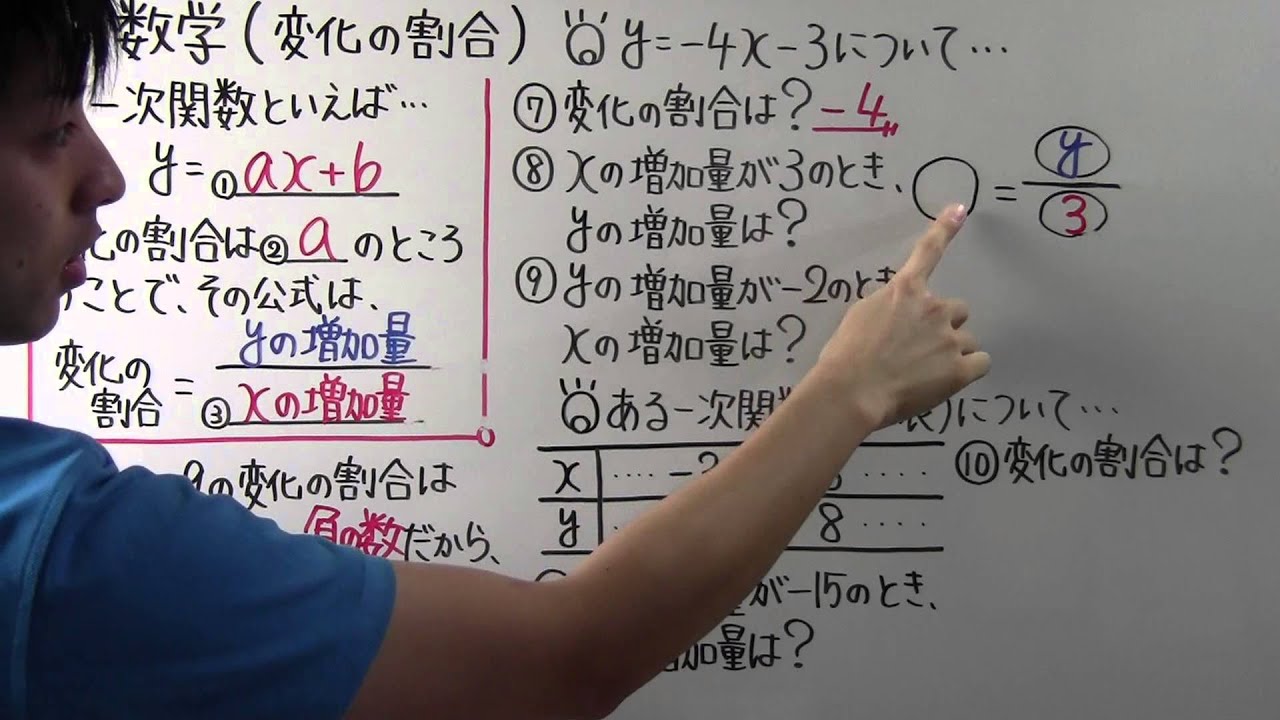 数学(変化の割合)
一次関数といえば…
y=①ax+b
の割合は②aのところ
ことで、その公式は、
変化の割合 = yの増加量
③xの増加量
の変化の割合は
負の数だから、
y=-4x-3について…
⑦変化の割合は?-4
⑧xの増加量が3のとき、
yの増加量は?
○=y/3
⑨yの増加量が-2のとき
xの増加量は?
ある一次関 について…
x …… ……
y 8 ……
⑩変化の割合は?
が-15のとき、
増加量は?